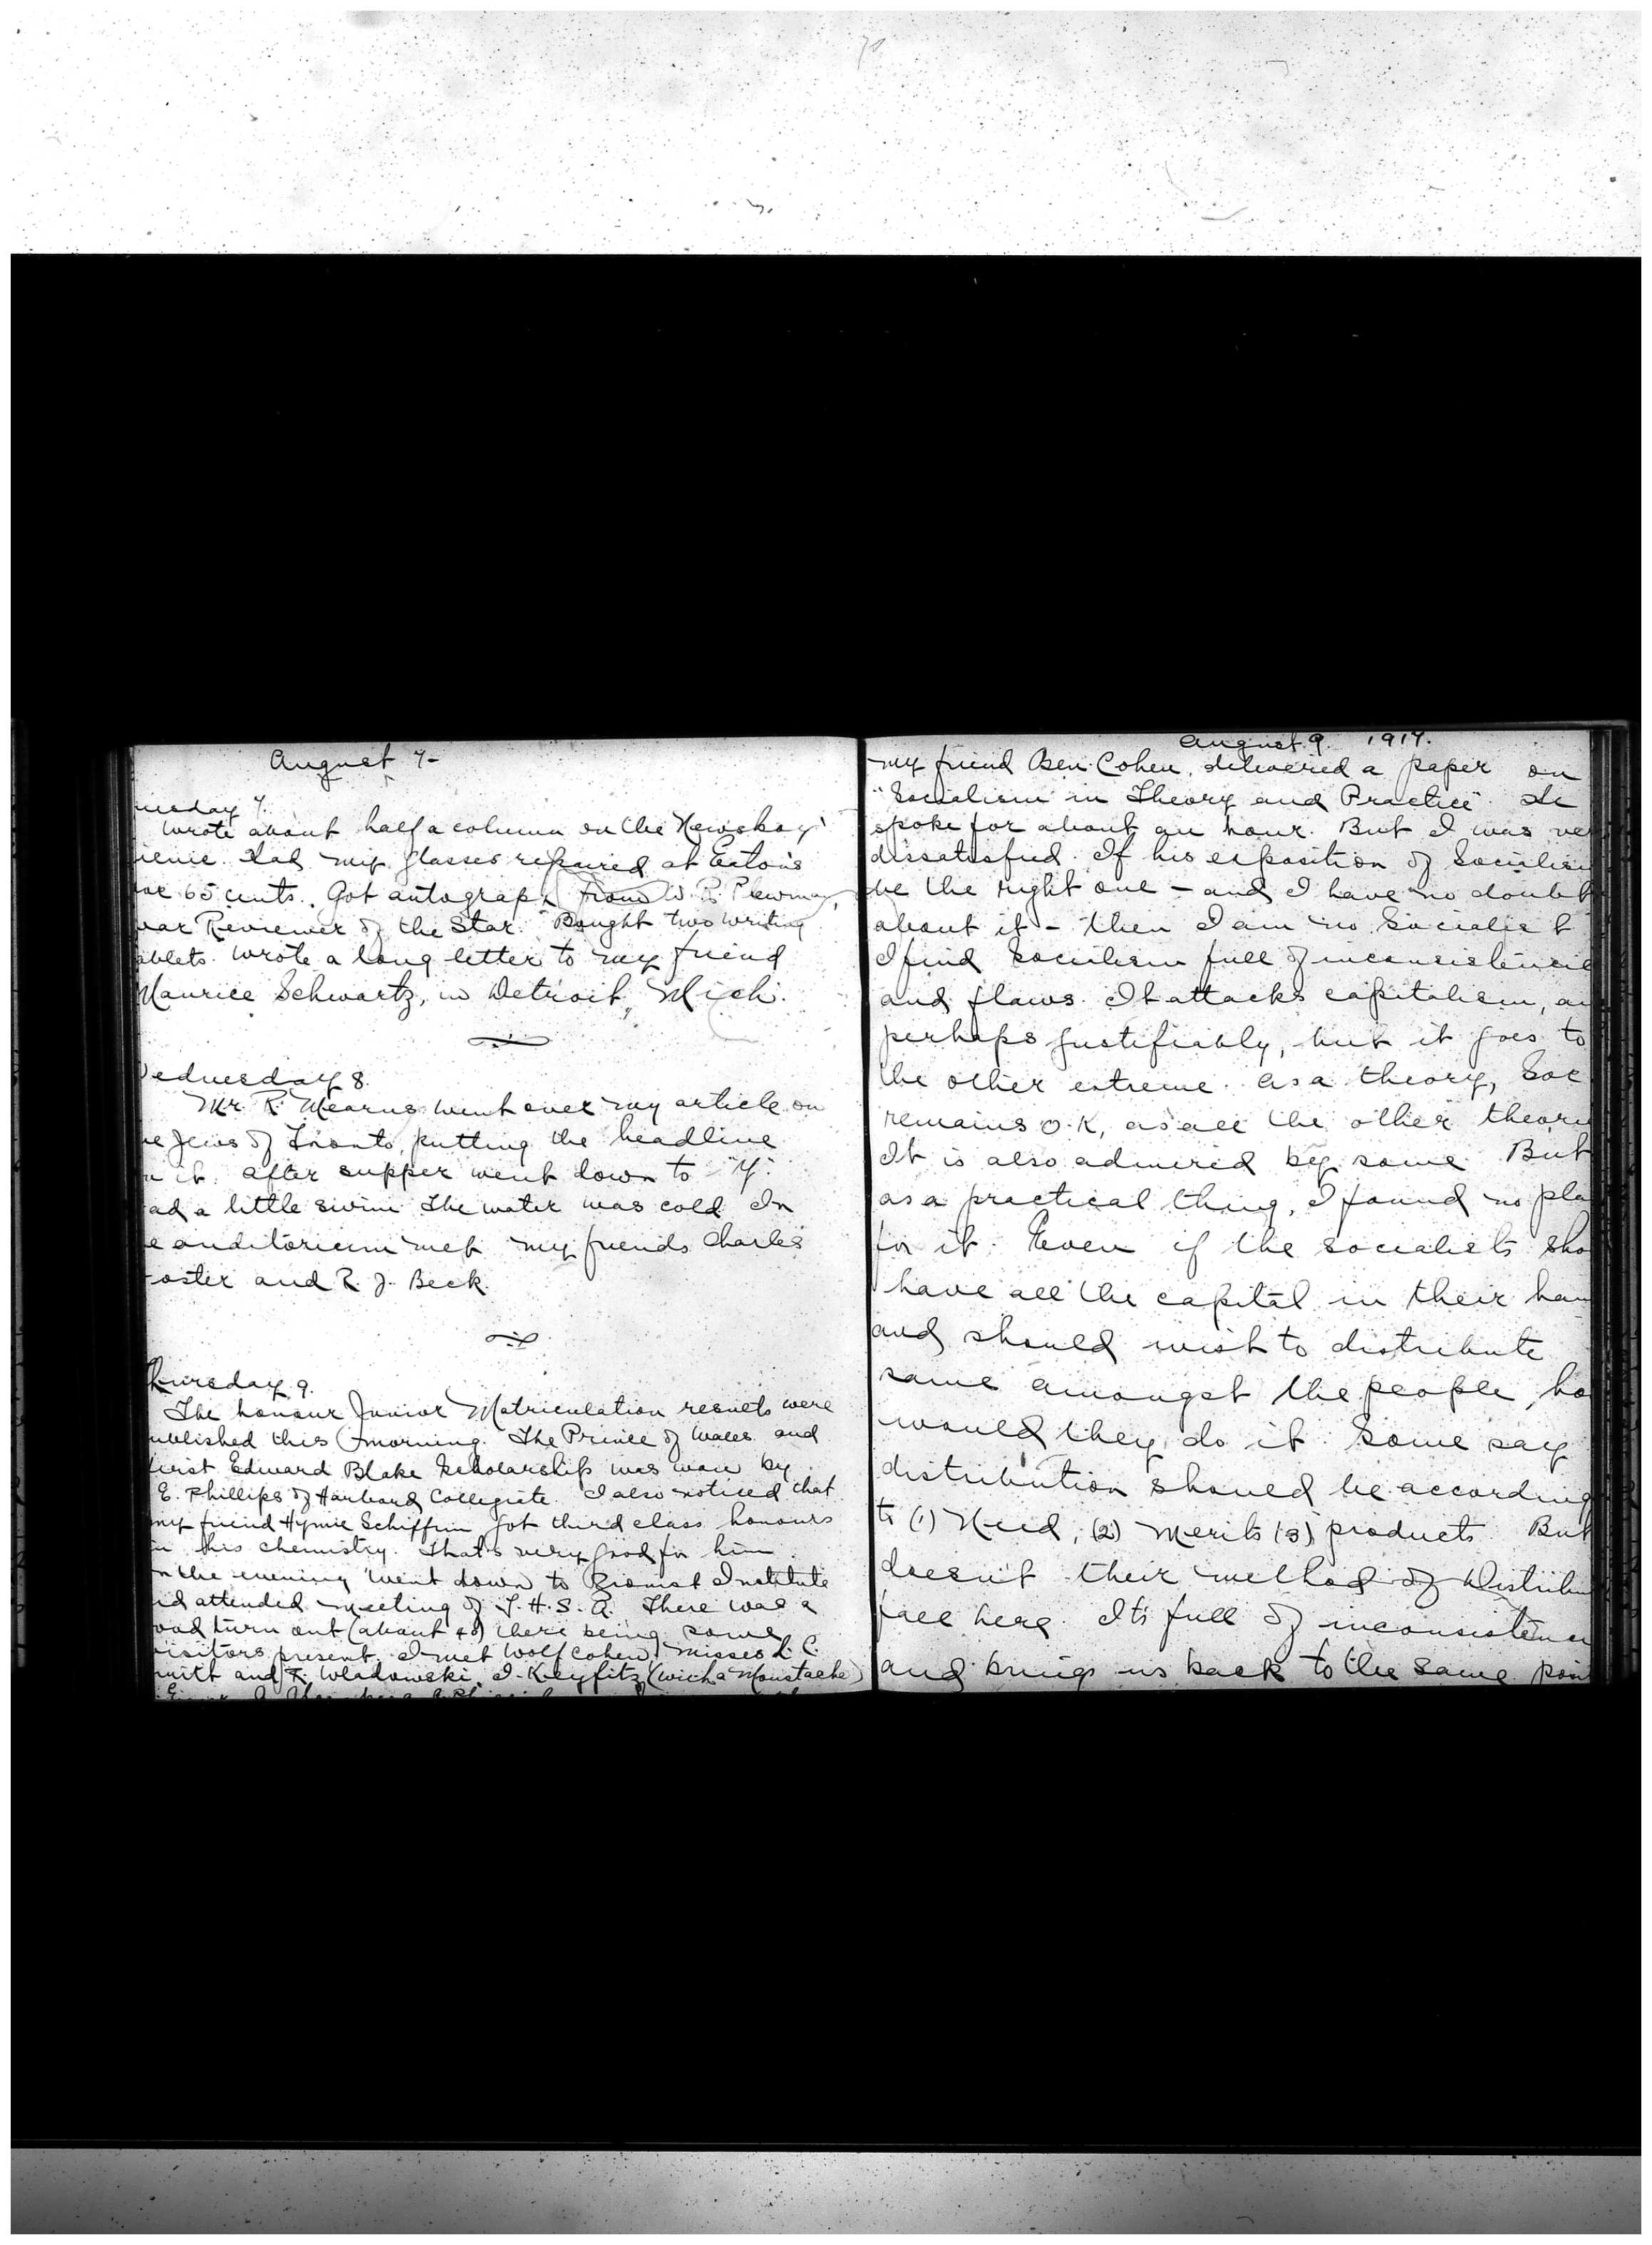 August 7-
uesday 7.
Wrote about half a column on the Newsboy's
icnic. Had my glasses repaired at Eaton's
for 65 cents. Got autograph from W. R. Plewman,
war Reviewer of the Star. Bought two writing
ablets. Wrote a long letter to my friend
Maurice Schwartz, in Detroit, Mich.
Wednesday 8.
Mr. R. Mearns went over my article on
he Jews of Toronto, putting the headline
n it. After supper went down to "Y".
ad a little swim. The water was cold. In
e auditorium met my friends Charles
oster and R. J. Beck.
Thursday 9.
The honour Junior Matriculation results were
ublished this morning. The Prince of Wales and
first Edward Blake Scholarship was won by
E. Phillips of Harbord Collegiate. I also noticed that
my friend Hymie Schiffrin got third class honours
in his chemistry. That's very good for him.
n the evening went down to Zionist Institute
nd attended meeting of T.H.S.A. There was a
ood turn out (about 40) there being some
visitors present. I met Wolf Cohen, Misses L. C.
mith and R. Wladowski, I. Keyfitz (with a Moustache)
August 9 1917.
my friend Ben Cohen, delivered a paper on
"Socialism in Theory and Practice". He
spoke for about an hour. But I was ve
dissatisfied. If his exposition of Socialism
be the right one - and I have no doubt
about it - then I am no Socialist
I find Socialism full of inconsistencie
and flaws. It attacks capitalism, an
perhaps justifiably, but it goes to
the other extreme. As a theory, Soc
remains O.K, as all the other theori
It is also admired by some. But
as a practical thing, I found no pla
for it. Even if the socialists sho
have all the capital in their han
and should wish to distribute
same amongst the people, ho
would they do it. Some say
distribution should be according
to (1) Need, (2) Merits (3) products. But
doesn't their method of Distribu
fall here. It's full of inconsistenci
and brings us back to the same poin